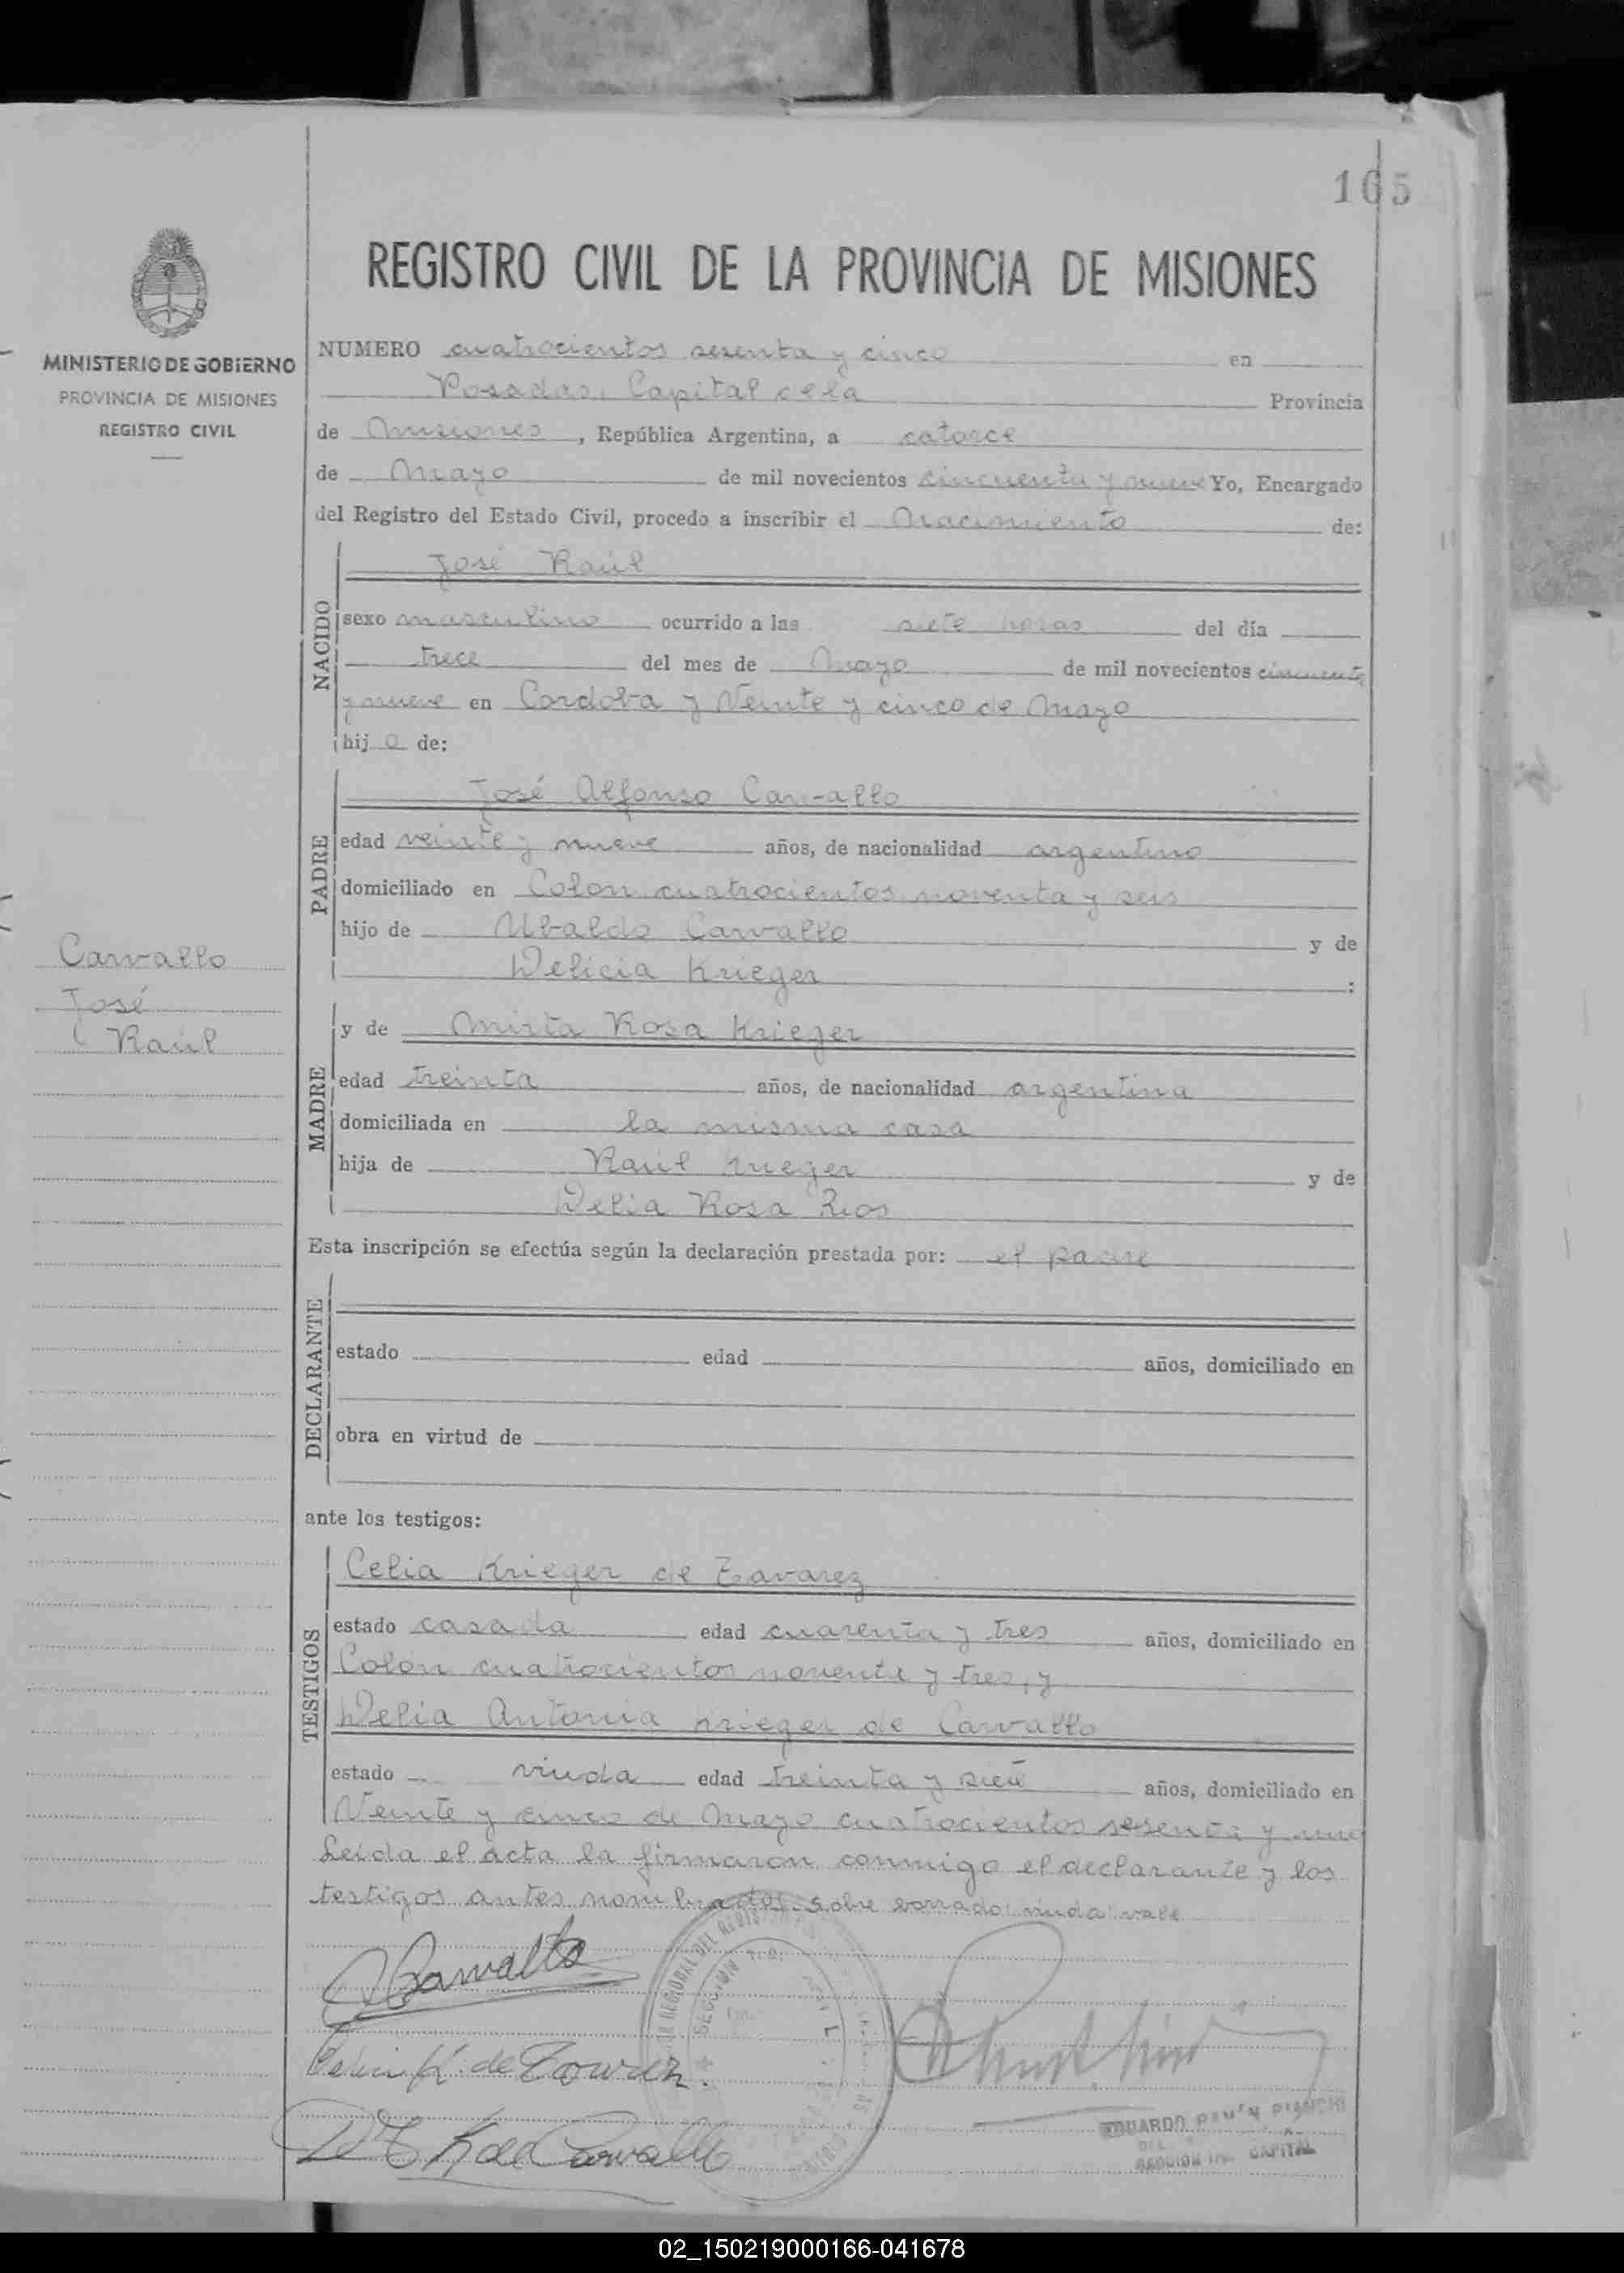 165
REGISTRO CIVIL DE LA PROVINCIA DE MISIONES
MINISTERIO DE GOBIERNO
PROVINCIA DE MISIONES
REGISTRO CIVIL
NUMERO cuatrocientos sesenta y cinco en
Posadas, Capital de la Provincia
de Misiones, República Argentina, a catorce
de Mayo de mil novecientos cincuenta y nueve Yo, Encargado
del Registro del Estado Civil, procedo a inscribir el Nacimiento de:
José Raúl
NACIDO
sexo masculino ocurrido a las siete horas del día
trece del mes de Mayo de mil novecientos cincuenta
y nueve en Cordoba y Veinte y cinco de Mayo
hijo de:
José Alfonso Carvallo
PADRE
edad veinte y nueve años, de nacionalidad argentino
domiciliado en Colon cuatrocientos noventa y seis
hijo de Ubaldo Carvallo y de
Delicia Krieger :
Carvallo
José
Raúl
y de Mirta Rosa Krieger
MADRE
edad treinta años, de nacionalidad argentina
domiciliada en la misma casa
hija de Raúl Krieger y de
Delia Rosa Rios
Esta inscripción se efectúa según la declaración prestada por: el padre
DECLARANTE
estado edad años, domiciliado en
obra en virtud de
ante los testigos:
TESTIGOS
Celia Krieger de Tavarez
estado casada edad cuarenta y tres años, domiciliado en
Colón cuatrocientos noventa y tres, y
Delia Antonia Krieger de Carvallo
estado viuda edad treinta y siete años, domiciliado en
Veinte y cinco de Mayo cuatrocientos sesenta y uno
Leída el acta la firmaron conmigo el declarante y los
testigos antes nombrados. sobre borrado: viuda: vale
Carvallo
K. de
K de Carvallo
REGIONAL DEL
SECCION
EDUARDO RAMON BIANCHI
CAPITAL
02_150219000166-041678